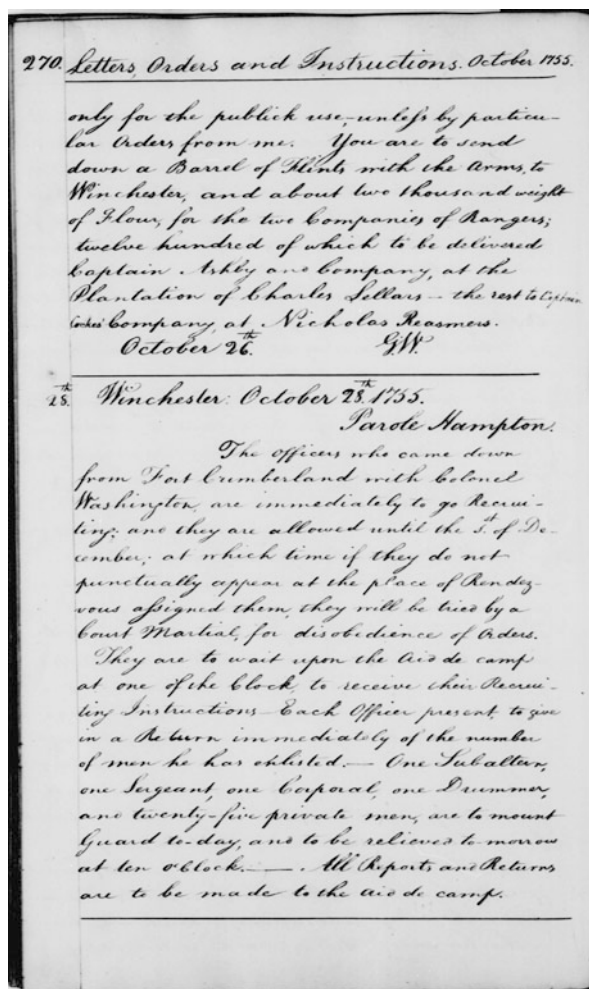 270. Letters, Orders and Instructions. October 1755.
only for the publick use, unless by particu-
lar Orders from me. You are to send
down a Barrel of Flints with the Arms, to
Winchester, and about two thousand weight
of Flour, for the two Companies of Rangers;
twelve hundred of which to be delivered
Captain Ashby and Company, at the
Plantation of Charles Sellars — the rest to Captain
Cockes' Company, at Nicholas Reasmers.
October 26th. G.W.
28th. Winchester: October 28th. 1755.
Parole Hampton.
The Officers who came down
from Fort Cumberland with Colonel
Washington, are immediately to go Recrui-
ting; and they are allowed until the 1st. of De-
cember; at which time if they do not
punctually appear at the place of Rendez-
vous assigned them, they will be tried by a
Court Martial, for disobedience of Orders.
They are to wait upon the Aid de camp
at one of the Clock, to receive their Recrui-
ting Instructions — Each Officer present, to give
in a Return immediately of the number
of men he has enlisted. — One Subaltern,
one Sergeant, one Corporal, one Drummer,
and twenty-five private men, are to mount
Guard to-day, and to be relieved to-morrow
at ten o'Clock. — . All Reports and Returns
are to be made to the Aid de camp.